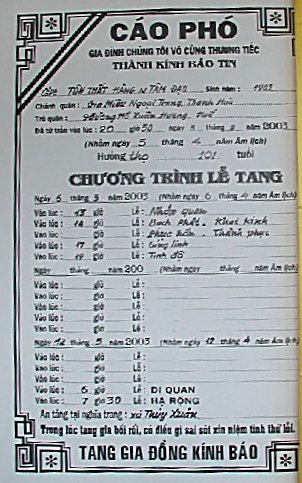 CÁO PHÓ
GIA ĐÌNH CHÚNG TÔI VÔ CÙNG THƯƠNG TIẾC
THÀNH KÍNH BÁO TIN
TÔN THẤT HÀNG TÂM ĐẠO Sinh năm : 1903
Chánh quán : Gia Miêu Ngoại Trang, Thanh Hoá
Trú quán : Hồ Xuân Hương, Huế
Đã từ trần vào lúc : 20 giờ 50 ngày 5 tháng 5 năm 2003
(Nhằm ngày 5 tháng 4 năm Âm lịch)
Hưởng thọ 101 tuổi
CHƯƠNG TRÌNH LỄ TANG
Ngày 6 tháng 5 năm 2003 (Nhằm ngày 6 tháng 4 năm Âm lịch)
Vào lúc : 13 giờ Lễ : Nhập quan
Vào lúc : 14 giờ Lễ : Bạch Phật, Khai Kinh
Vào lúc : giờ Lễ : Phục hồn, Thành phục
Vào lúc : 17 giờ Lễ : Cúng linh
Vào lúc : 19 giờ Lễ : Tịnh độ
Ngày tháng năm 200 (Nhằm ngày tháng năm Âm lịch)
Vào lúc : giờ Lễ :
Vào lúc : giờ Lễ :
Vào lúc : giờ Lễ :
Vào lúc : giờ Lễ :
Vào lúc : giờ Lễ :
Ngày 12 tháng 5 năm 2003 (Nhằm ngày 12 tháng 4 năm Âm lịch)
Vào lúc : giờ Lễ :
Vào lúc : giờ Lễ :
Vào lúc : giờ Lễ :
Vào lúc : 6 giờ Lễ : DI QUAN
Vào lúc : 7 giờ 30 Lễ : HẠ RỘNG
An táng tại nghĩa trang : xã Thủy Xuân
Trong lúc tang gia bối rối, có điều gì sai sót xin niệm tình thứ lỗi.
TANG GIA ĐỒNG KÍNH BÁO